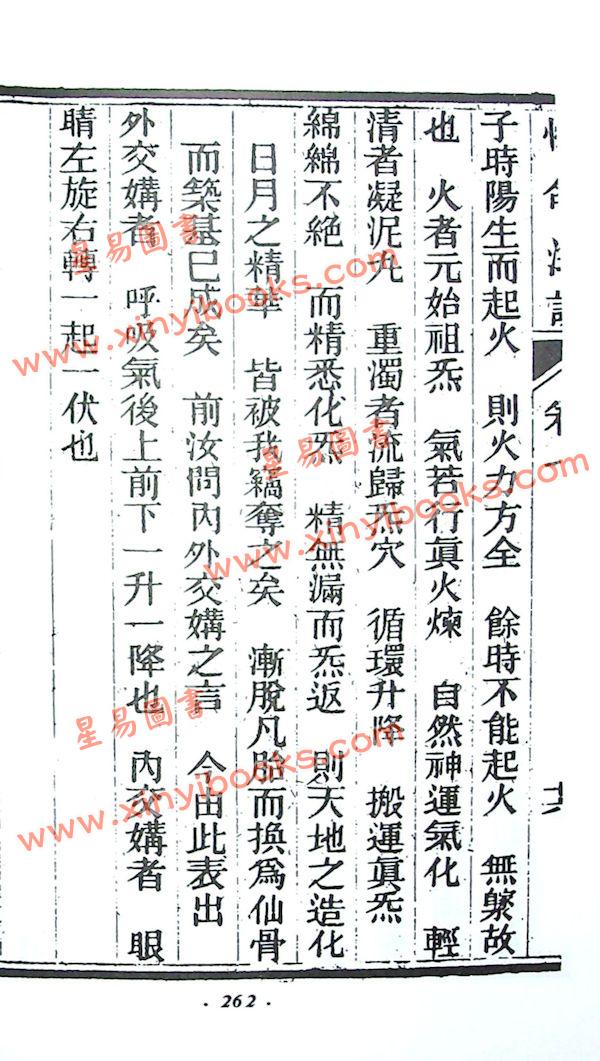 子時陽生而起火　則火力方全　餘時不能起火　無藥故
也　火者元始祖炁　氣若行眞火煉　自然神運氣化　輕
清者凝泥丸　重濁者流歸炁穴　循環升降　搬運眞炁
綿綿不絕　而精悉化炁　精無漏而炁返　則天地之造化
日月之精華　皆被我竊奪之矣　漸脫凡胎而換爲仙骨
而築基已成矣　前汝問內外交媾之言　今由此表出
外交媾者　呼吸氣後上前下一升一降也　內交媾者　眼
睛左旋右轉一起一伏也
· 262 ·
星易圖書
www.xinyibooks.com
星易圖書
www.xinyibooks.com
星易圖書
www.xinyibooks.com